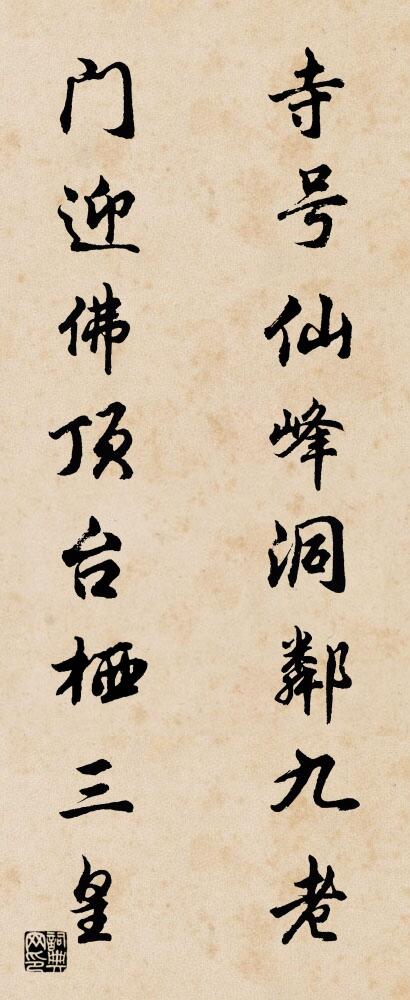 寺号仙峰洞鄰九老
门迎佛顶台栖三皇
詞典网印